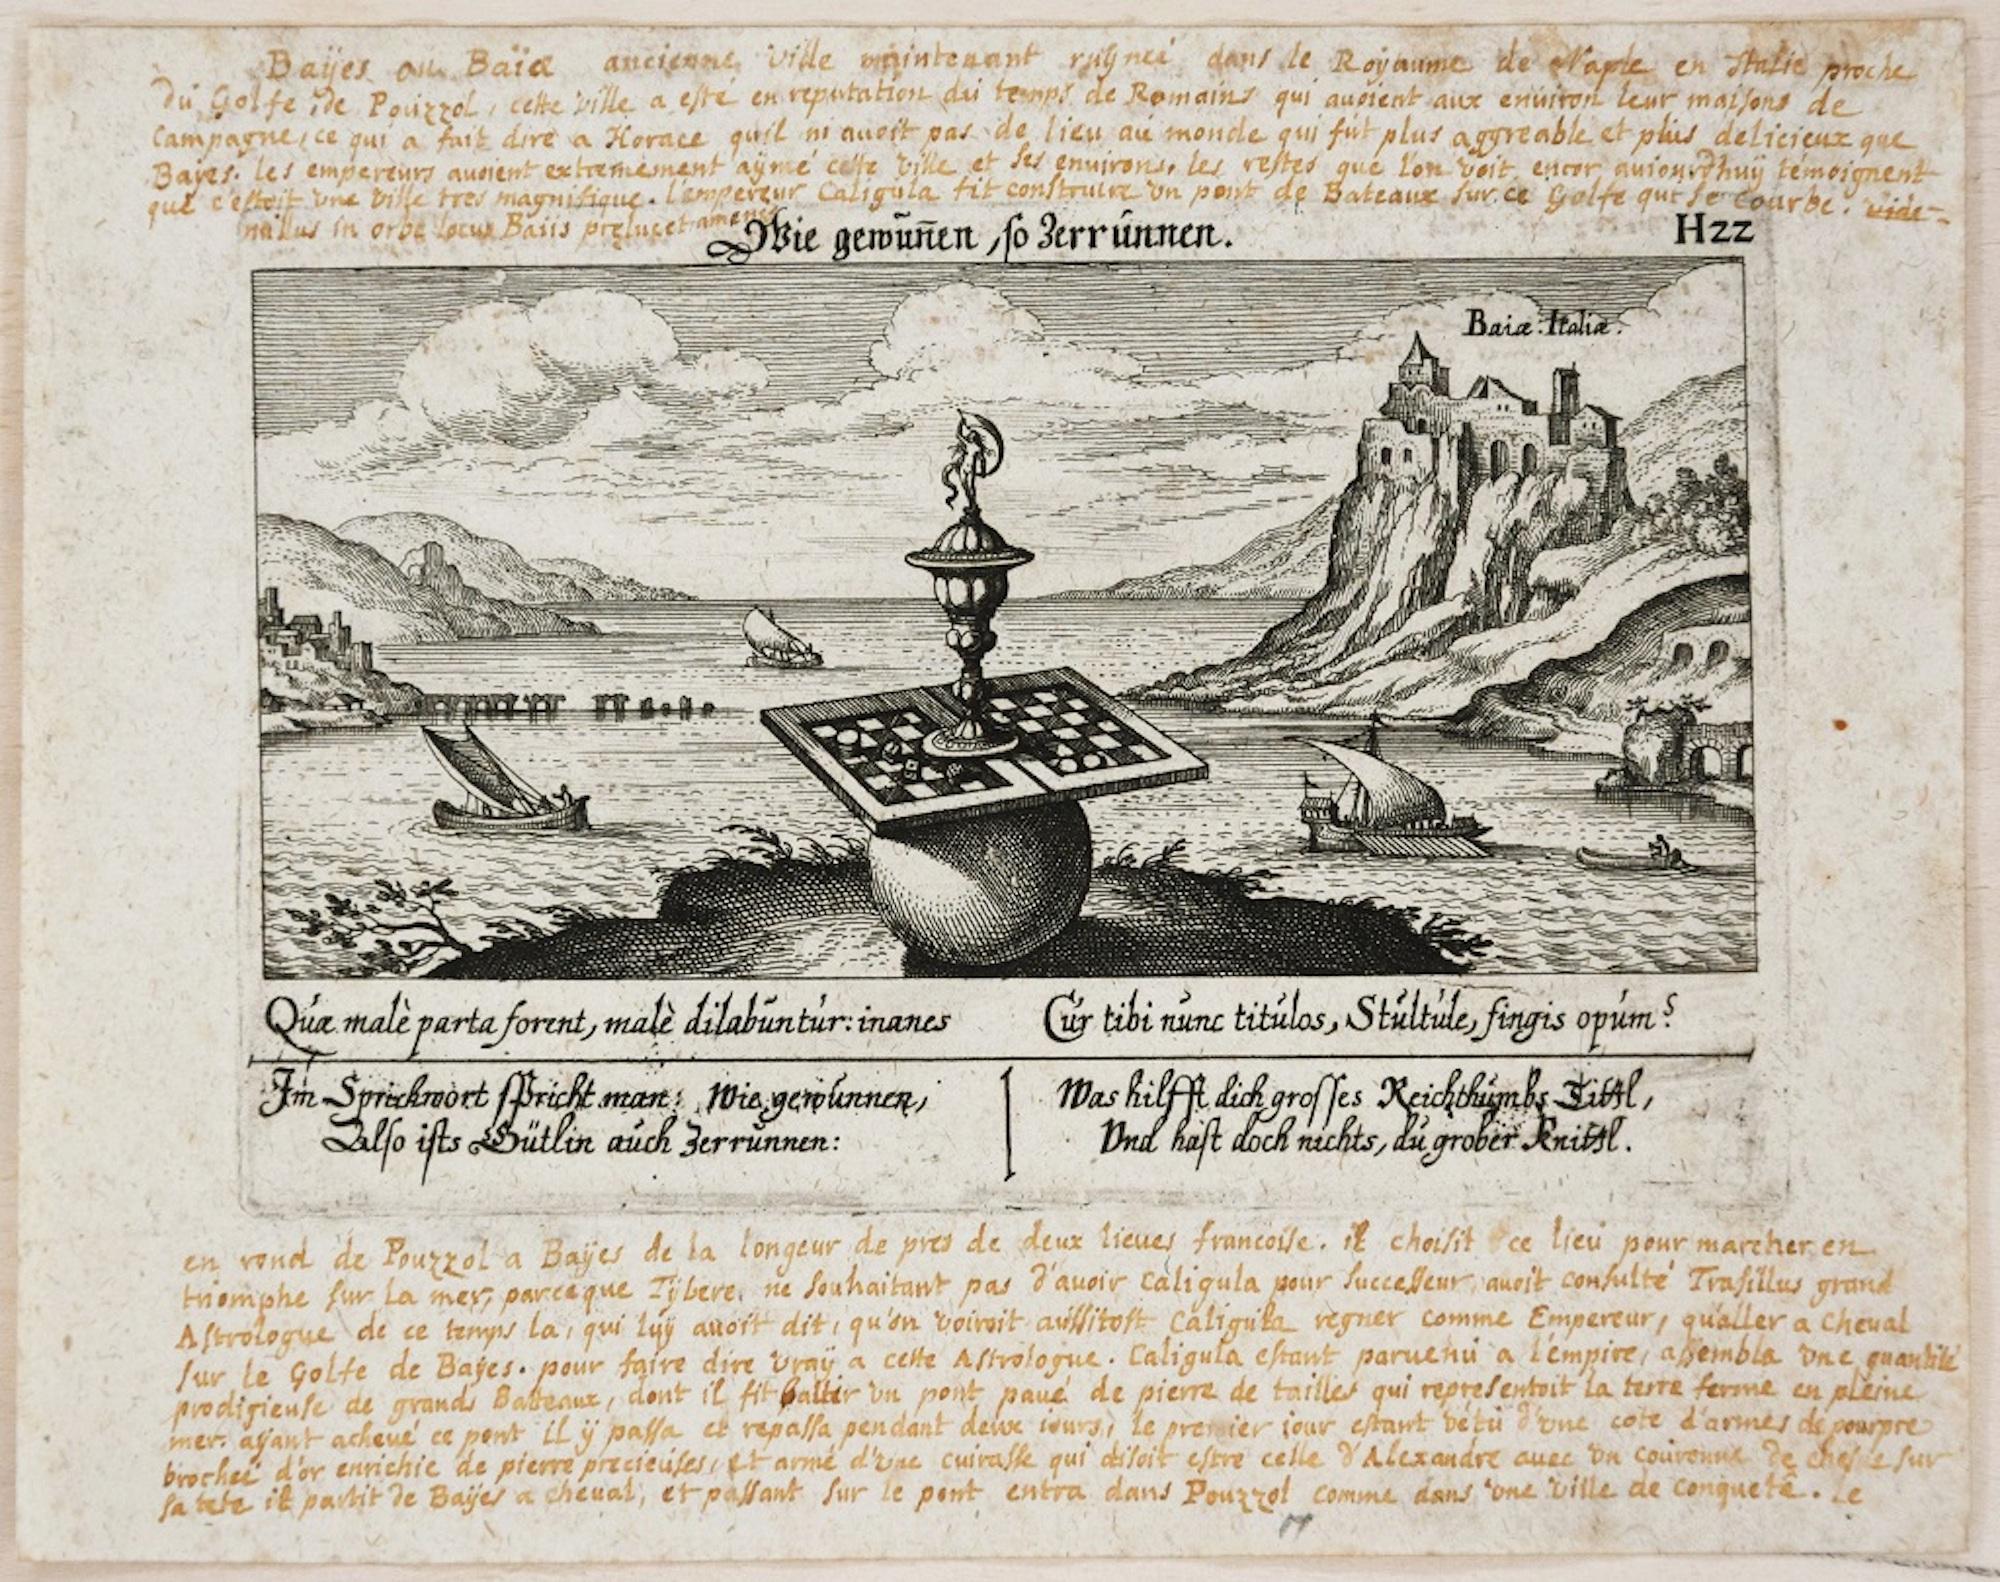 Baÿes ou Baïæ ancienne ville maintenant ruÿneé dans le Roÿaume de Naple en Italie proche
du Golfe de Pouzzol, cette ville a esté en reputation du temps de Romains qui auoient aux enuiron leur maisons de
Campagne, ce qui a fait dire a Horace quil ni auoit pas de lieu au monde qui fút plus aggreable et plus delicieux que
Bayes. les empereurs auoient extremement aÿmé cette ville et ses enuirons. les restes que l'on voit encor auiourd'huÿ témoignent
que c'estoit une ville tres magnifique. l'empereur Caligula fit construire un pont de Bateaux sur ce Golfe qui se courbe.
nullus in orbe locus Baiis prelucet amenis
Wie gewūn̄en, so Zerrúnnen.
Hzz
Baiæ: Italiæ.
Quæ malè parta forent, malè dilabūntúr: inanes
Cúr tibi núnc titúlos, Stúltúle, fingis opúm?
Im Sprichwort spricht man: Wie gewúnnen,
Also ists Gütlin aúch Zerrúnnen:
Was hilfft dich grosses Reichthúmbs Tittl,
Vnd hast doch nichts, dú grober Knittl.
en rond de Pouzzol a Baÿes de la longeur de pres de deux lieues francoise. il choisit ce lieu pour marcher en
triomphe sur la mer, parceque Tÿbere, ne souhaitant pas d'auoir Caligula pour successeur auoit consulté Trasillus grand
Astrologue de ce temps la, qui luÿ auoit dit, qu'on voiroit aussitost Caligula regner comme Empereur, qu'aller a cheval
sur le Golfe de Bayes. pour faire dire vraÿ a cette Astrologue. Caligula estant paruenu a l'empire, assembla vne quantité
prodigieuse de grands Batteaux, dont il fit battir vn pont paué de pierre de tailles qui representoit la terre ferme en pleine
mer. aÿant acheué ce pont il ÿ passa et repassa pendant deux iours, le premier iour estant vétu d'vne cote d'armes de pourpre
brocheé d'or enrichie de pierre precieuses, et armé d'vne cuirasse qui disoit estre celle d'Alexandre avec vn couronne de chesne sur
sa tete il partit de Baÿes a cheual, et passant sur le pont entra dans Pouzzol comme dans vne ville de conqueté. Le